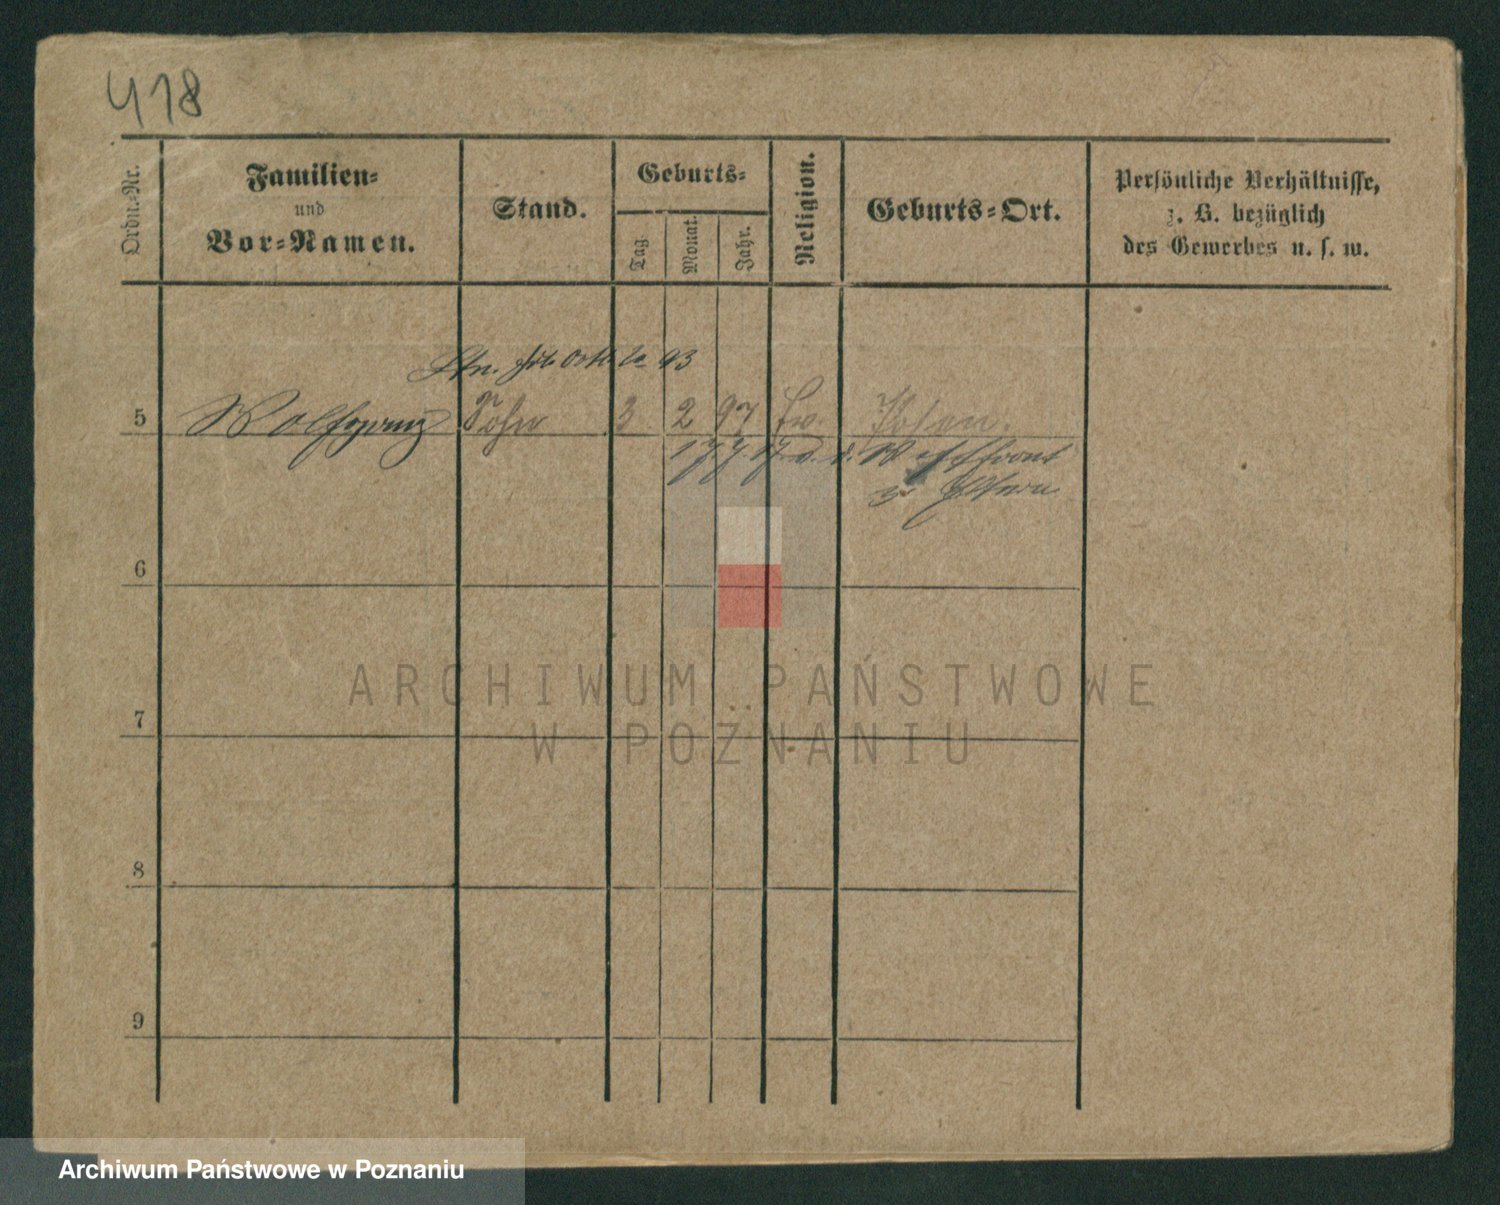 418
Ordn.-Nr.
Familien-
und
Vor-Namen.
Stand.
Geburts-
Tag.
Monat.
Jahr.
Religion.
Geburts-Ort.
Persönliche Verhältnisse,
z. B. bezüglich
des Gewerbes u. s. w.
93
5 Wolfgang Sohn 3 2 97 Ev. Posen.
v. d. Westfront
z. Eltern
6
7
8
9
ARCHIWUM PAŃSTWOWE
W POZNANIU
Archiwum Państwowe w Poznaniu